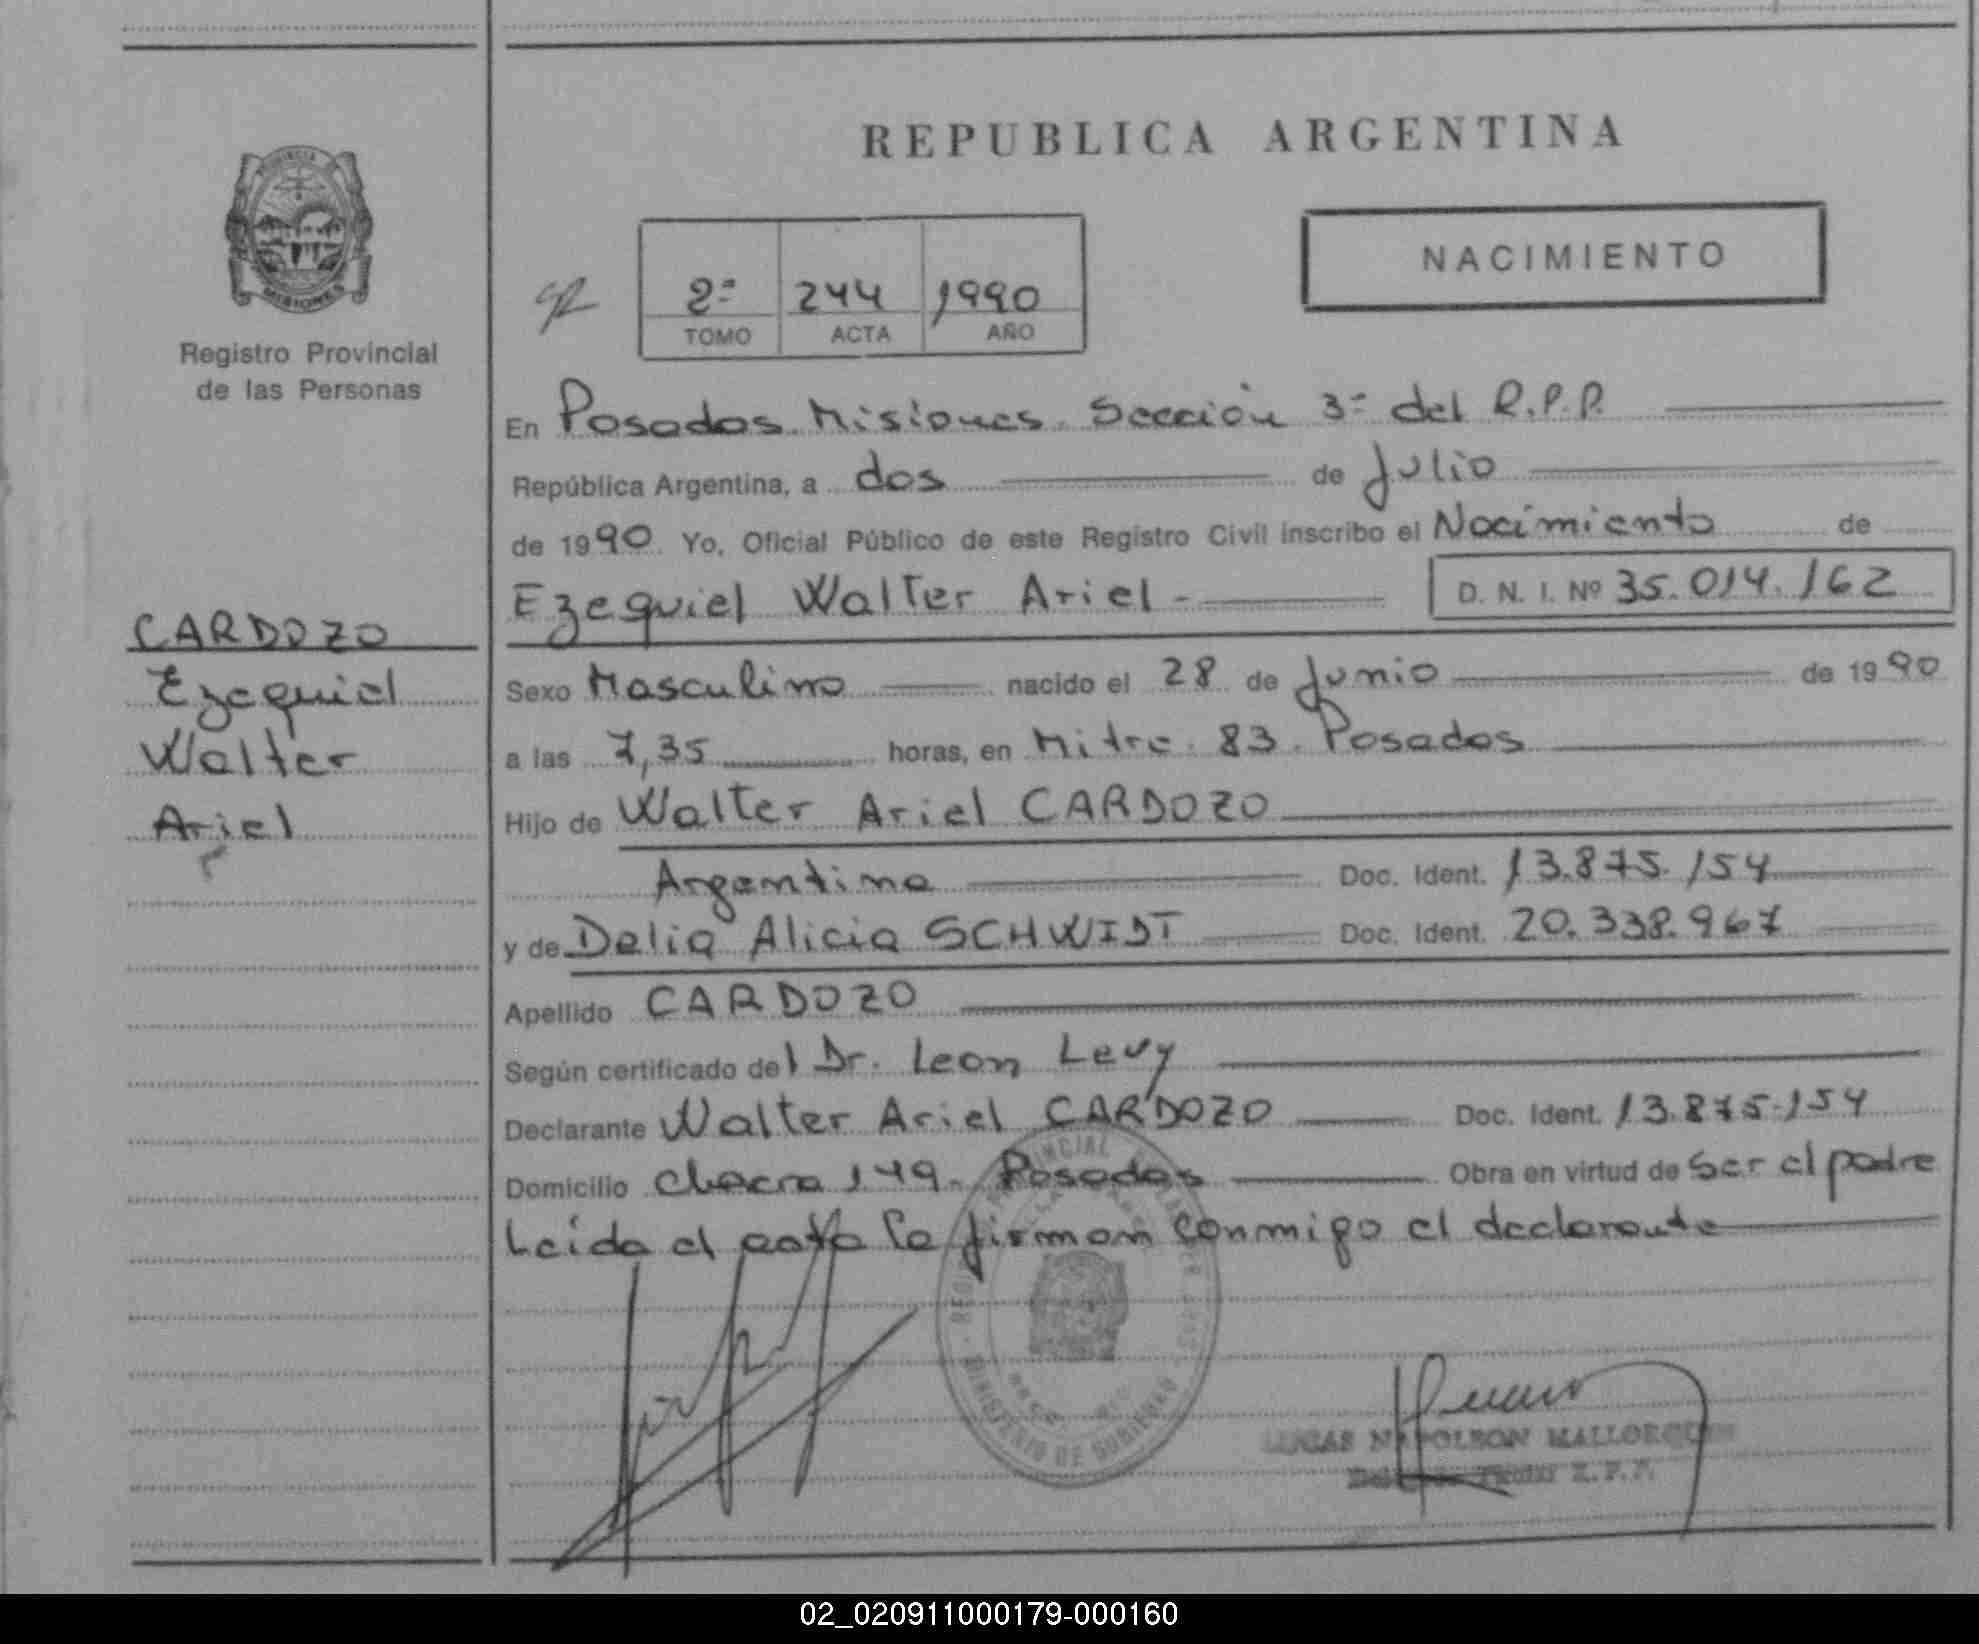 REPUBLICA ARGENTINA
PROVINCIA
MISIONES
Registro Provincial
de las Personas
NACIMIENTO
2ª 244 1990
TOMO ACTA AÑO
En Posadas. Misiones. Sección 3ª del R.P.P.
República Argentina, a dos de Julio
de 1990. Yo, Oficial Público de este Registro Civil inscribo el Nacimiento de
Ezequiel Walter Ariel - D. N. I. Nº 35.014.162
CARDOZO
Ezequiel
Walter
Ariel
Sexo Masculino nacido el 28 de Junio de 1990
a las 7,35 horas, en Mitre. 83. Posadas
Hijo de Walter Ariel CARDOZO
Argentino Doc. Ident. 13.875.154
y de Delia Alicia SCHWIDT Doc. Ident. 20.338.967
Apellido CARDOZO
Según certificado del Dr. Leon Levy
Declarante Walter Ariel CARDOZO Doc. Ident. 13.875.154
Domicilio chacra 149. Posadas Obra en virtud de ser el padre
Leida el acta la firman conmigo el declarante
MINISTERIO DE GOBIERNO
LUCAS NAPOLEON MALLORQUIN
Titular R.P.P.
02_020911000179-000160